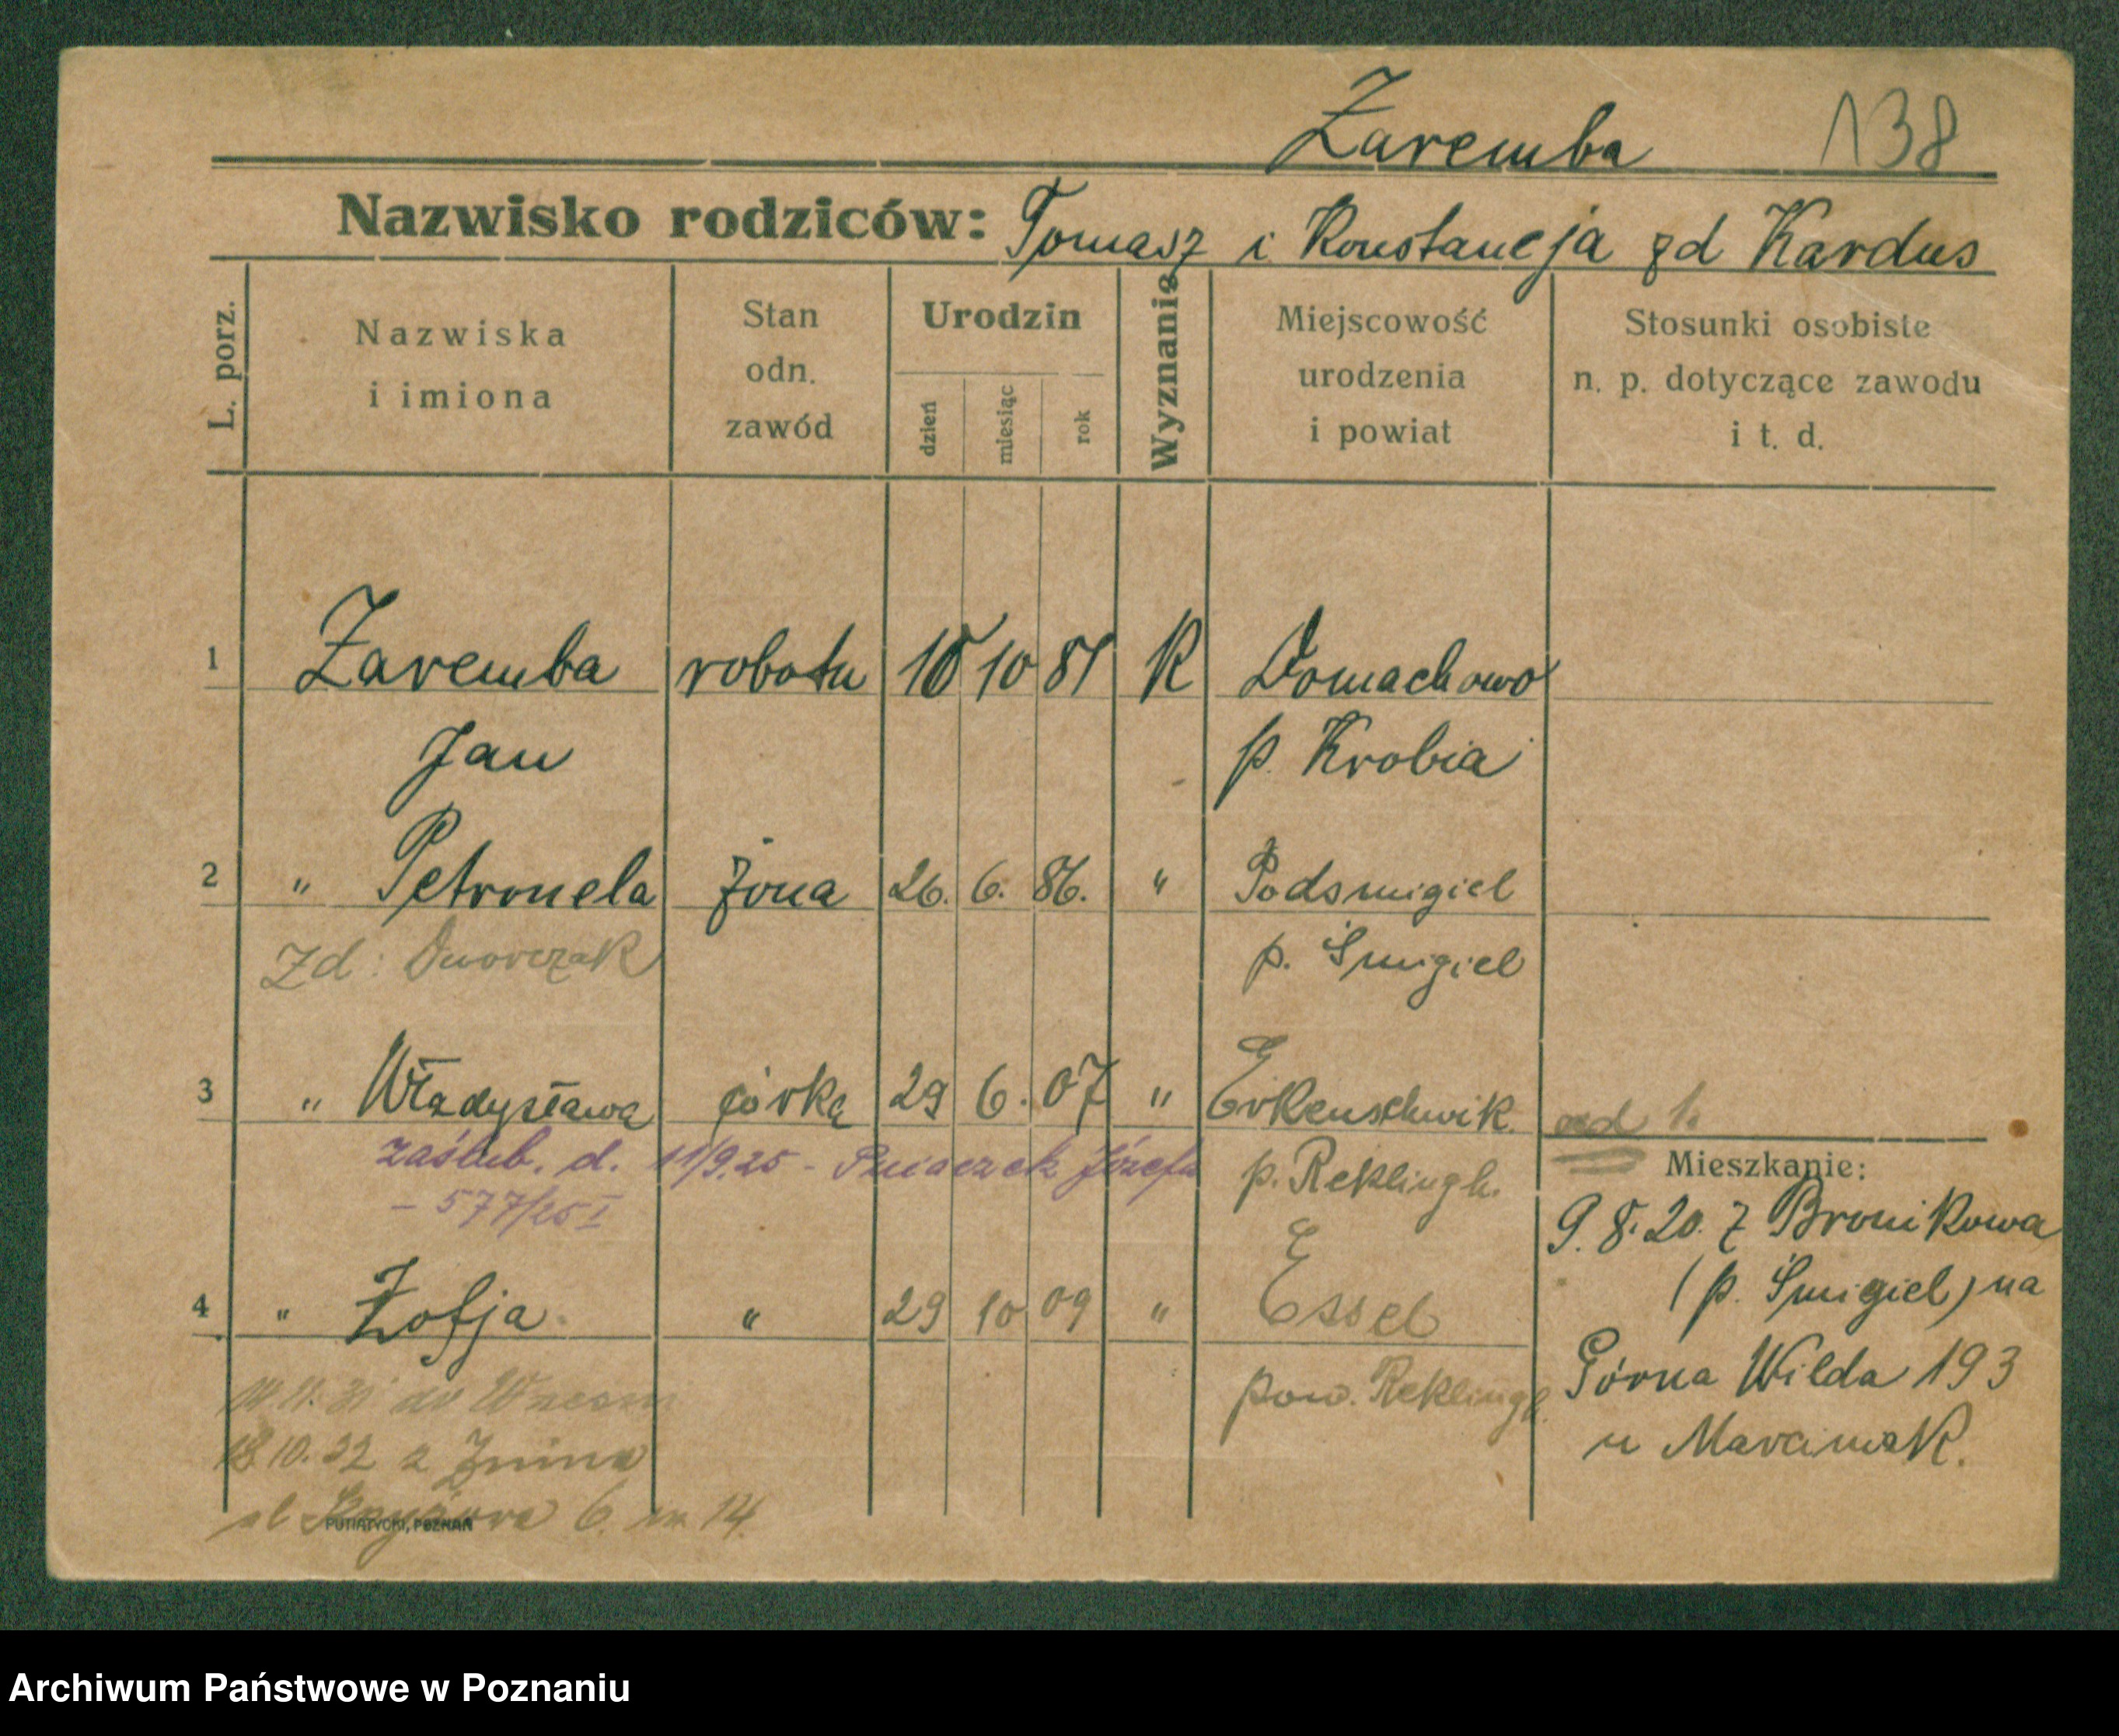 Zaremba 138
Nazwisko rodziców: Tomasz i Konstancja zd Kardus
L. porz.
Nazwiska i imiona
Stan odn. zawód
Urodzin
dzień miesiąc rok
Wyznanie
Miejscowość urodzenia i powiat
Stosunki osobiste n. p. dotyczące zawodu i t. d.
1 Zaremba robotn 10 81 K Domachowo
Jan p. Krobia
2 " Petronela żona 26. 6. 86. " Podsmigiel
Zd: Dworczak p. Śmigiel
3 " Władysława córka 29 6. 07 " Erkenschwik.
zaślub. d. 11/9.25 - Józefa p. Reklingh.
- 577/25 I
4 " Zofja " 29 10 09 " Essel
pow. Reklingh.
18.10.32 z Żnina
6. m 14.
PUTIATYCKI, POZNAŃ
od 1.
Mieszkanie:
9.8.20. z Bronikowa
(p. Śmigiel) na
Górna Wilda 193
u Marciniak.
Archiwum Państwowe w Poznaniu